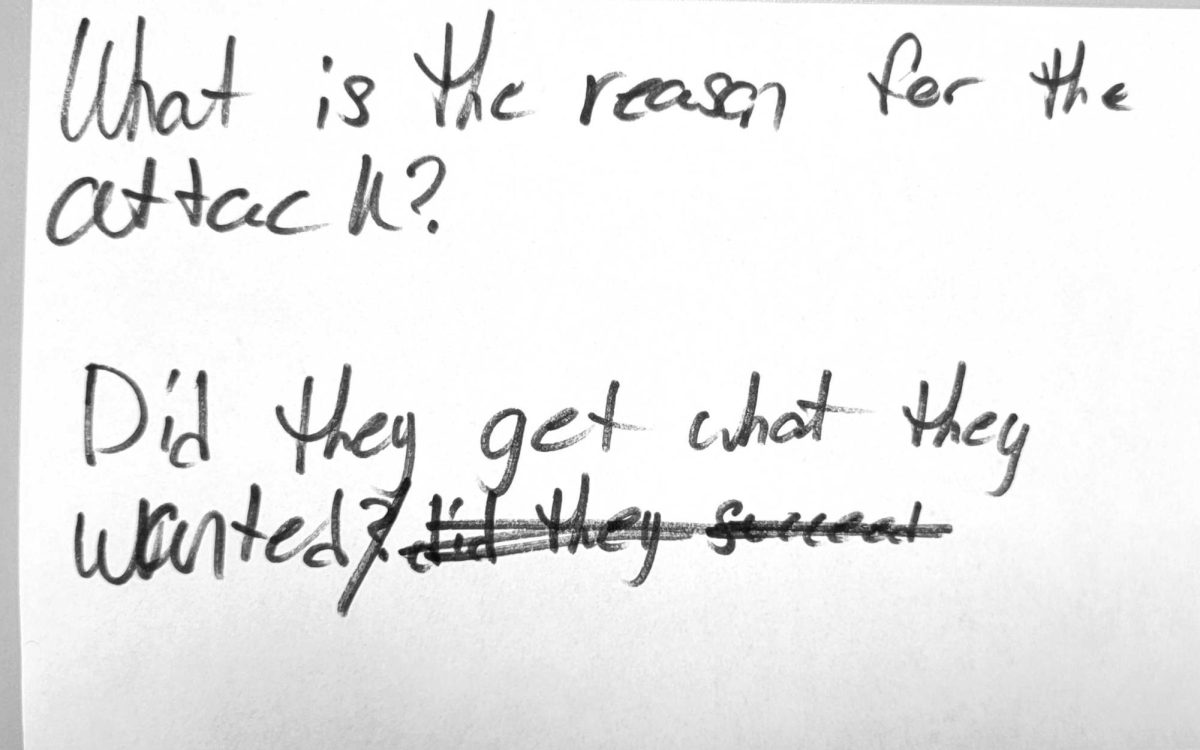 What is the reason for the
attack?
Did they get what they
wanted? did they